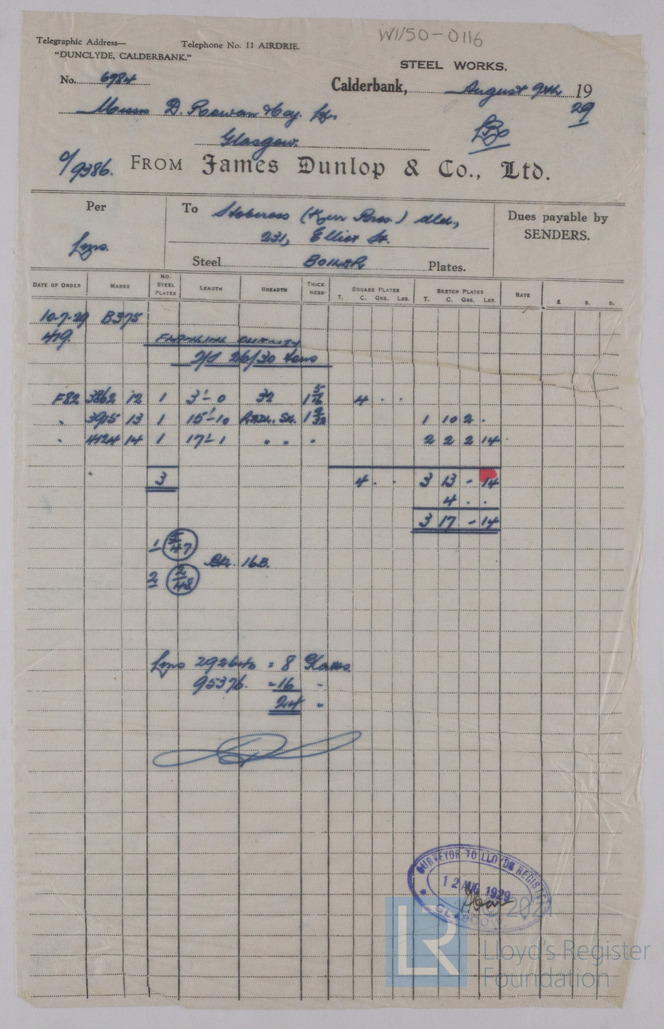 W1150-0116
Telegraphic Address— Telephone No. 11 AIRDRIE.
"DUNCLYDE, CALDERBANK."
STEEL WORKS.
No. 6984 Calderbank, August 9th 1929
Messrs D. Rowan & Coy. Ltd.
Glasgow.
O/9386. FROM James Dunlop & Co., Ltd.
Per To Stobcross (Kerr Bros.) Dues payable by
231, Elliot St. SENDERS.
Steel BOILER Plates.
DATE OF ORDER MARKS NO. STEEL PLATES LENGTH BREADTH THICKNESS SQUARE PLATES SKETCH PLATES RATE £ S. D.
T. C. Qrs. Lbs. T. C. Qrs. Lbs.
10-7-29 B375
419.
26/30 Tons
F82 3862 12 1 3'-0 32 4 . .
. 3975 13 1 15'-10 1 10 2 .
. 4424 14 1 17'-1 . . . 2 2 2 14
3 4 . . 3 13 - 14
4 . .
3 17 - 14
1 47
2 2/48
= 8
95376. -16 "
24 "
SURVEYOR TO LLOYDS REGISTER
12 AUG 1929
GLASGOW
© 2021
LR
Lloyd's Register
Foundation